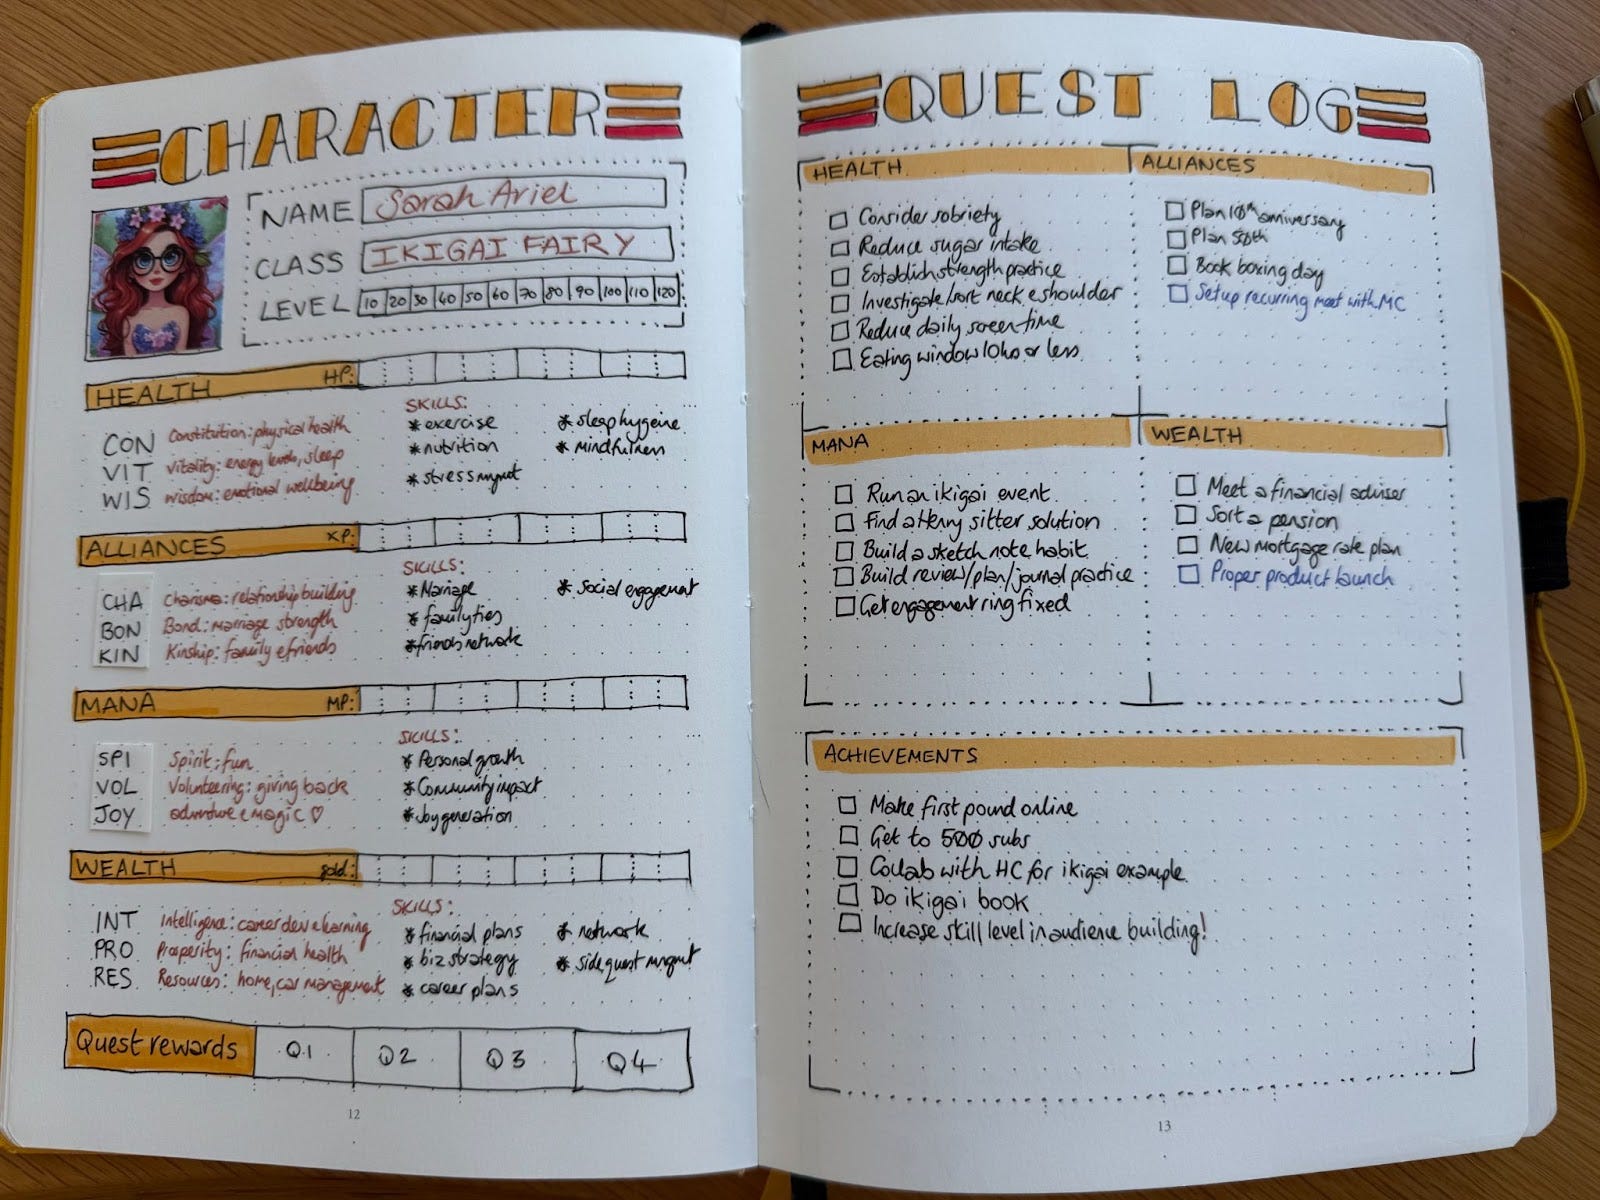 CHARACTER
NAME Sarah Ariel
CLASS IKIGAI FAIRY
LEVEL 10 20 30 40 50 60 70 80 90 100 110 120
HEALTH HP:
CON Constitution: physical health
VIT Vitality: energy levels, sleep
WIS Wisdom: emotional wellbeing
SKILLS:
* exercise * sleep hygiene
* nutrition * mindfulness
* stress mngmt
ALLIANCES XP:
CHA Charisma: relationship building
BON Bond: marriage strength
KIN Kinship: family & friends
SKILLS:
* Marriage * Social engagement
* family ties
* friends network
MANA MP:
SPI Spirit: fun
VOL Volunteering: giving back
JOY adventure & magic ♡
SKILLS:
* Personal growth
* Community impact
* Joy generation
WEALTH gold:
INT Intelligence: career dev & learning
PRO Prosperity: financial health
RES Resources: home, car management
SKILLS:
* financial plans * network
* biz strategy * side quest mngmt
* career plans
Quest rewards Q1 Q2 Q3 Q4
12
QUEST LOG
HEALTH
Consider sobriety
Reduce sugar intake
Establish strength practice
Investigate/sort neck & shoulder
Reduce daily screen-time
Eating window 10hrs or less
ALLIANCES
Plan 10th anniversary
Plan 50th
Book boxing day
Set up recurring meet with MC
MANA
Run an ikigai event
Find a Henry sitter solution
Build a sketch note habit
Build review/plan/journal practice
Get engagement ring fixed
WEALTH
Meet a financial adviser
Sort a pension
New mortgage rate plan
Proper product launch
ACHIEVEMENTS
Make first pound online
Get to 500 subs
Collab with HC for ikigai example
Do ikigai book
Increase skill level in audience building!
13